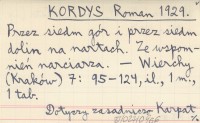 KORDYS Roman 1929.
Przez siedm gór i przez siedm
dolin na nartach. Ze wspom-
nień narciarza. — Wierchy
(Kraków) 7: 95-124, il., 1 m.,
1 tab.
Dotyczy zasadniczo Karpat